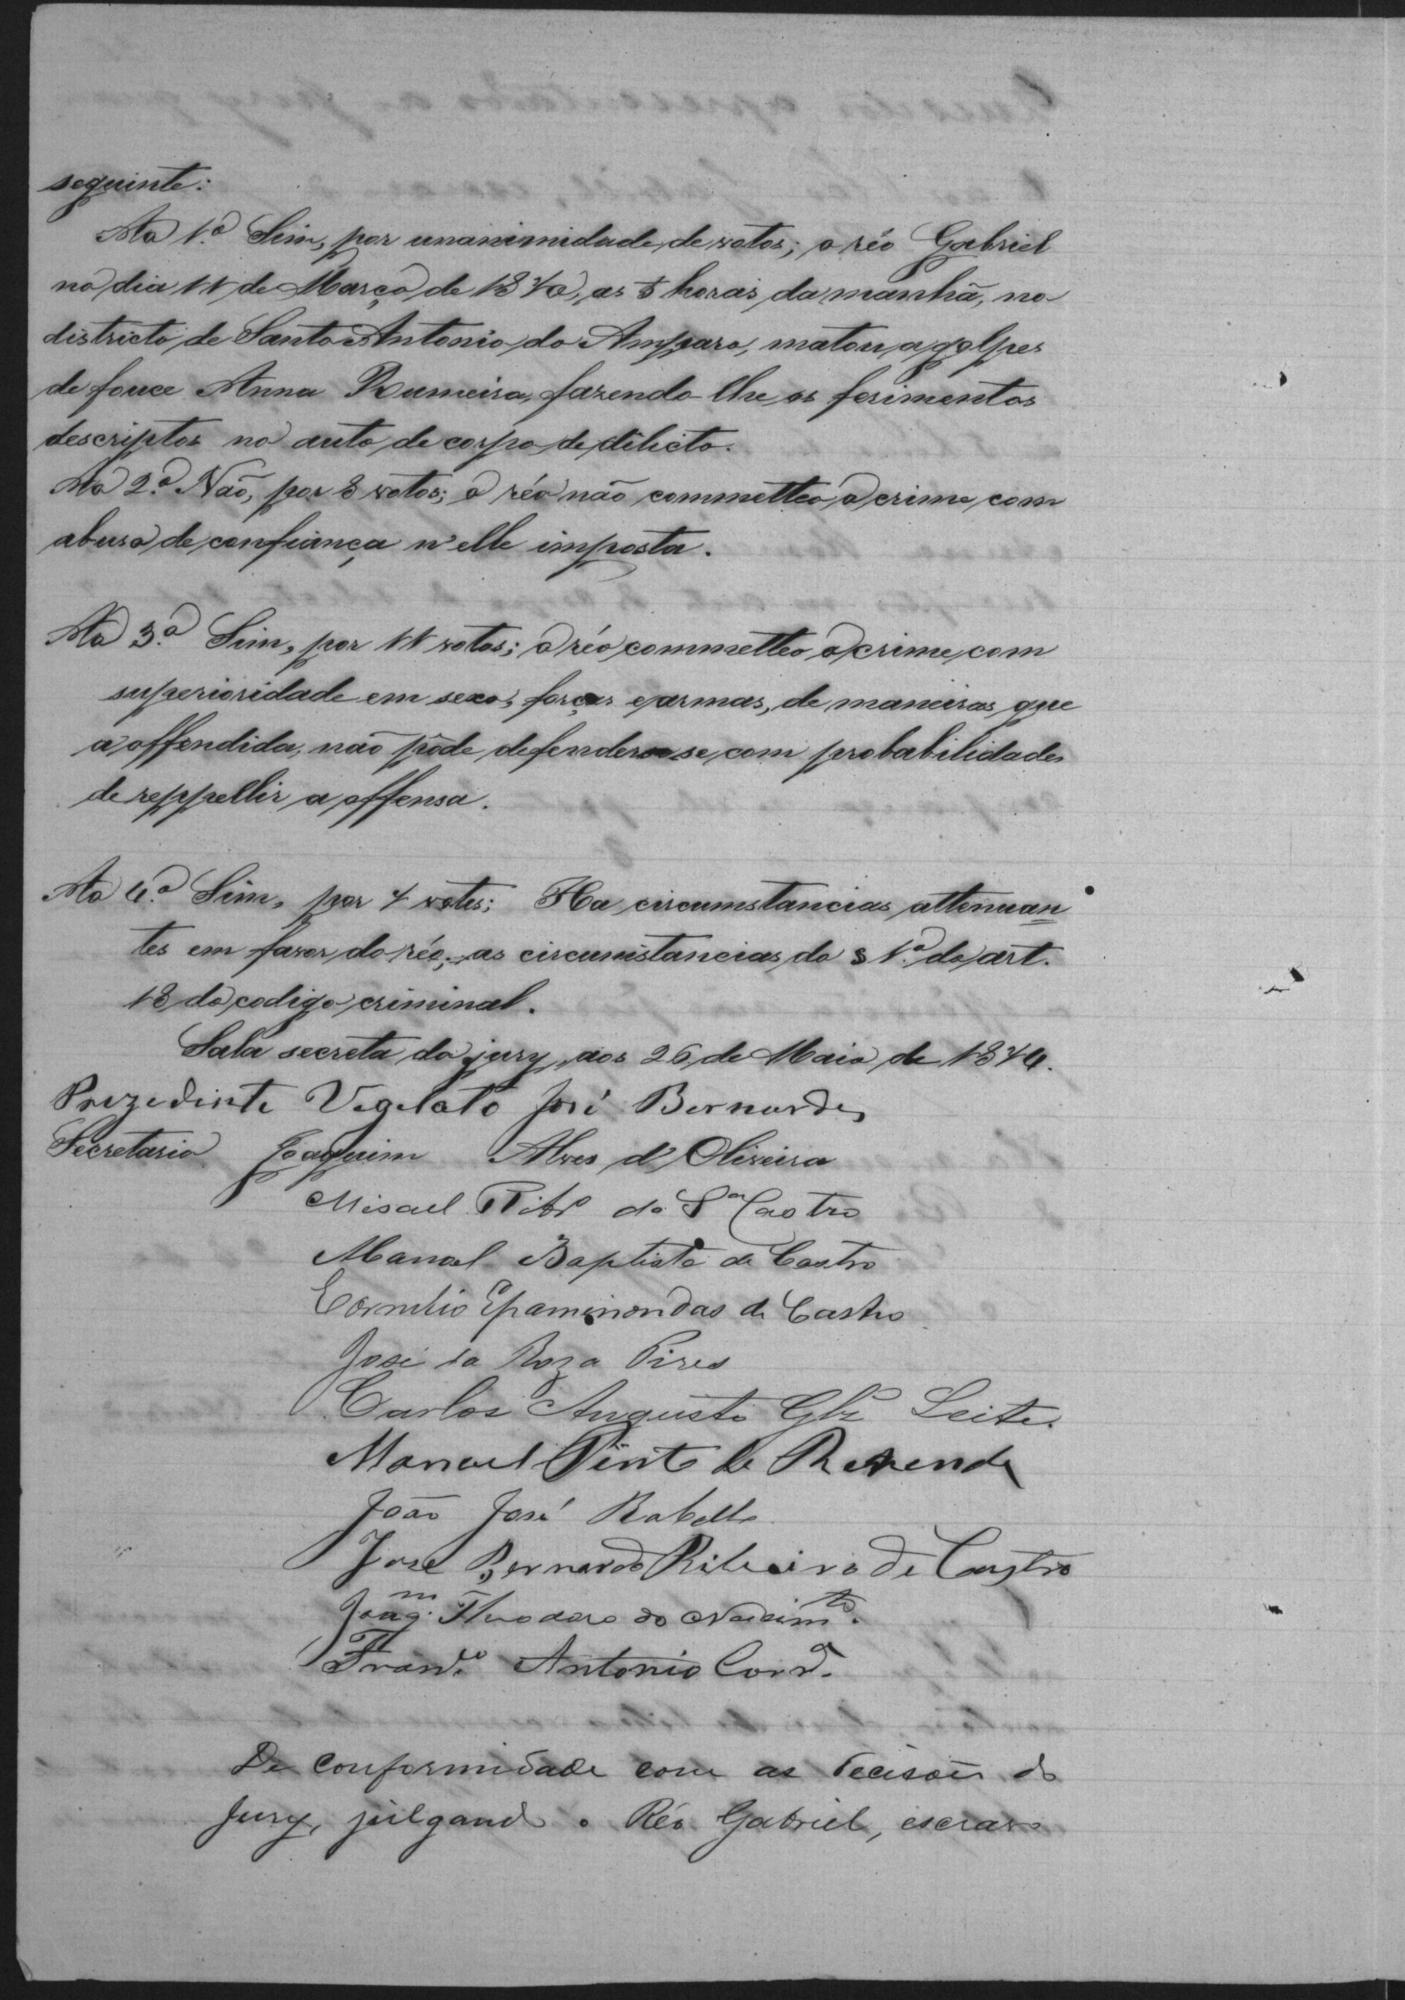 seguinte:
Ao 1.º Sim, por unanimidade de votos; o réo Gabriel
no dia 11 de Março de 187o, as 5 horas da manhã, no
districto de Santo Antonio do Amparo, matou a golpes
de fouce Anna Rumeira, fazendo-lhe os ferimentos
descriptos no auto de corpo de dilicto.
Ao 2.º Não, por 8 votos; o réo não commetteo o crime com
abuso de confiança n'elle imposta.
Ao 3.º Sim, por 11 votos; o réo commetteo o crime com
superioridade em sexo, forças e armas, de maneira que
a offendida não pôde defender-se com probabilidade
de reppellir a offensa.
Ao 4.º Sim, por 7 votos; Ha circumstancias attenuan
tes em favor do réo; as circumstancias do § 1.º do art.
18 do codigo criminal.
Sala secreta do jury, aos 26 de Maio de 1874.
Prezedinte Vegelato José Bernardes
Secretario Joaquim Alves d'Oliveira
Misael Ribr.º da S.ª Castro
Manoel Baptista de Castro
Cornelio Epaminondas de Castro
José da Roza Pires
Carlos Augusto Glz Leite.
Manoel Pinto de Rezende
João José Rabello
Jose Bernardo Ribeiro de Castro
Joaq.m Theodoro do Nascim.to.
Fran.co Antonio Cord.º
De conformidade com as decisões do
Jury, julgando o Réo Gabriel, escravo